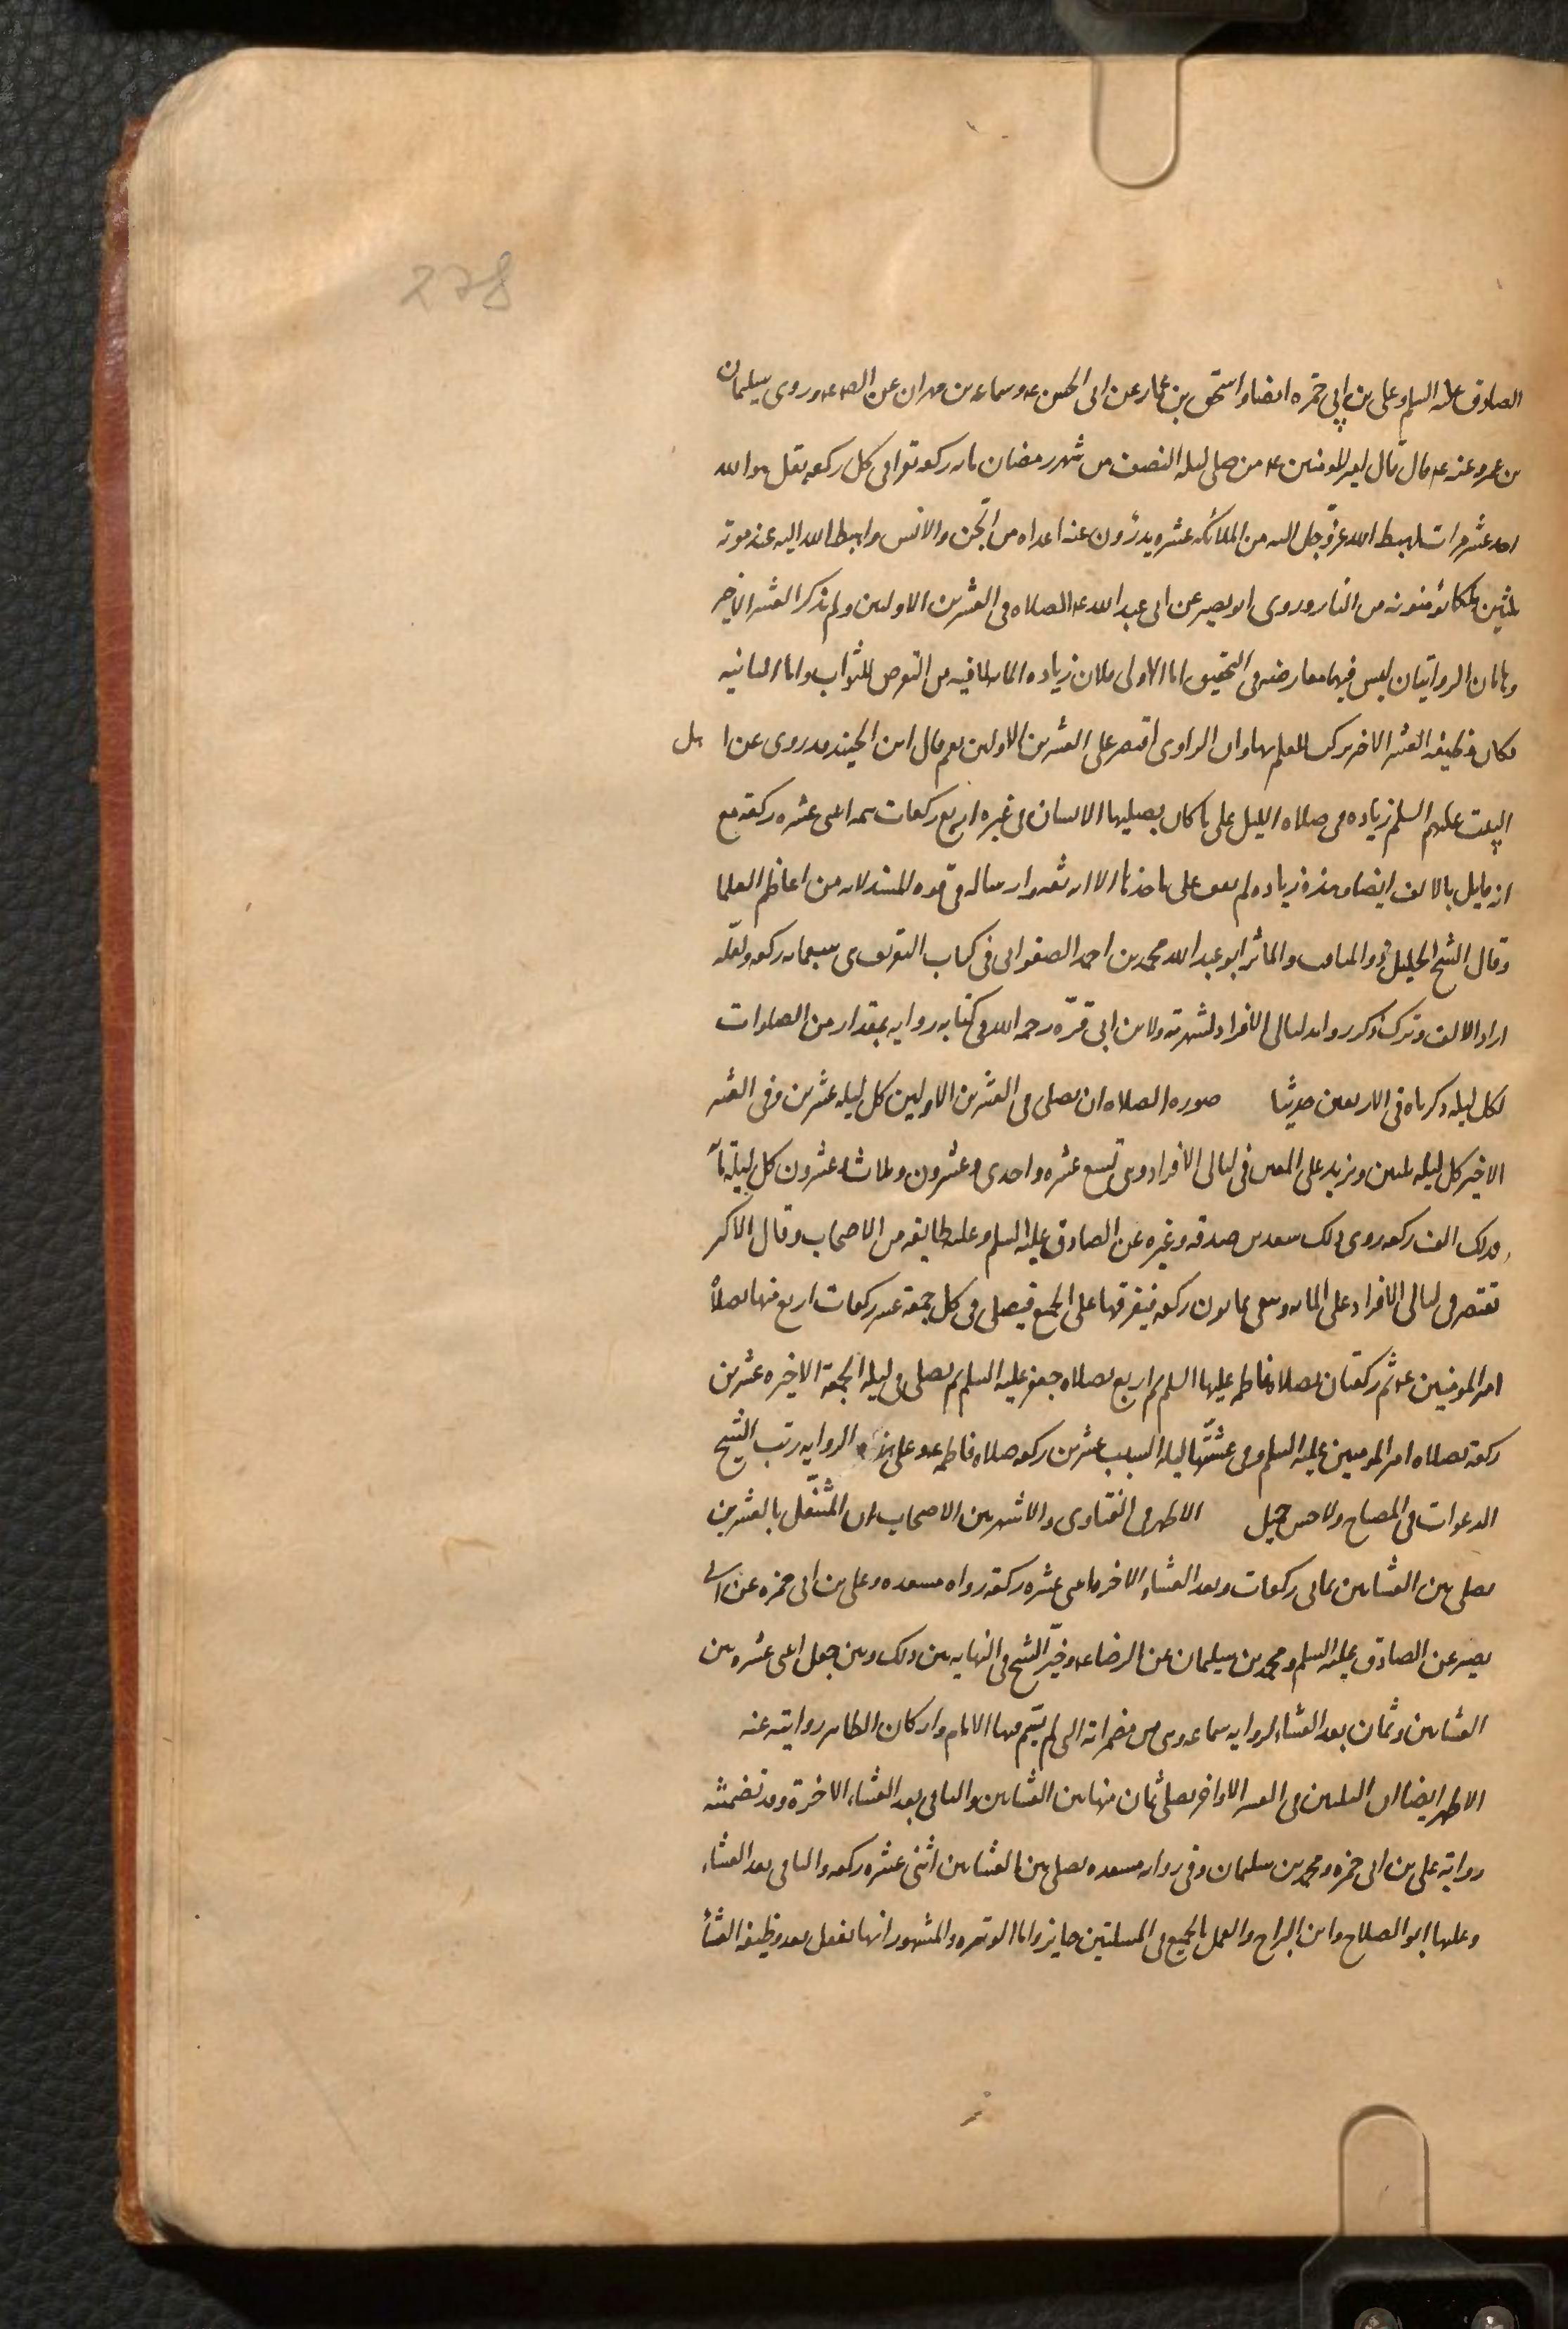 278
الصادق عليه السلم وعلى بن ابى حمزه ايضا و اسحق بن عمار عن ابى الحسن ع وسماعه بن مهران عن الصـ ع وروى سليمان
بن عمرو عنه ع قال قال امير المومنين ع من صلى ليله النصف من شهر رمضان مايه ركعه تقرا فى كل ركعه بقل هو الله
احد عشر مرات اهبط الله عز وجل اليه من الملائكه عشره يدرؤن عنه اعداه من الجن والانس واهبط الله اليه عند موته
ثلثين ملكا يؤمنونه من النار وروى ابو بصير عن ابى عبد الله ع الصلاه فى العشرين الاولين ولم يذكر العشر الاخير
وهاتان الروايتان ليس فيهما معارضه فى التحقيق اما الاولى فلان زياده المايه لما فيه من التعرض للثواب واما الثانيه
فكان وظيفه العشر الاخير ترك للعلم بها وان الراوى اقتصر على العشرين الاولين نعم قال ابن الجنيد قد روى عن اهل
البيت عليهم السلم زياده فى صلاه الليل على ما كان يصليها الانسان فى غيره اربع ركعات تتمه اثنى عشره ركعه مع
انه قايل بالالف ايضا وهذه زياده لم نقف على ماخذها الا انه ثقه وارساله فى قوه المسند لانه من اعاظم العلما
وقال الشيخ الجليل ذو المناقب والماثر ابو عبد الله محمد بن احمد الصفوانى فى كتاب التعريف هى سبعمايه ركعه ولعله
اراد الالف وترك ذكر زوايد ليالى الافراد لشهرته ولابن ابى قرّه رحمه الله فى كتابه روايه بمقدار من الصلوات
لكل ليله ذكرناه فى الاربعين حديثا صوره الصلاه ان يصلى فى العشرين الاولين كل ليله عشرين وفى العشر
الاخير كل ليله ثلثين ويزيد على المعين فى ليالى الافراد وهى تسع عشره واحدى وعشرون وثلاث وعشرون كل ليلة مآ
فذلك الف ركعه روى ذلك مسعده بن صدقه وغيره عن الصادق عليه السلم وعليه طايفه من الاصحاب وقال الاكثر
تقتصر فى ليالى الافراد على المايه وتبقى ثمانون ركعه فيفرقها على الجمع فيصلى فى كل جمعة عشر ركعات اربع منها بصلاة
امير المومنين ع ثم ركعتان بصلاه فاطمه عليها السلم ثم اربع بصلاه جعفر عليه السلم ثم يصلى فى ليله الجمعة الاخيره عشرين
ركعه بصلاه امير المومنين عليه السلم وفى عشيّتها ليله السبت عشرين ركعه صلاه فاطمه ع وعلى هذه الروايه رتب الشيخ
الدعوات فى المصباح ولا حسن جميل الاظهر فى الفتاوى والاشهر بين الاصحاب ان المتنفّل بالعشرين
يصلى بين العشاءين ثمانى ركعات وبعد العشاء الاخره اثنى عشره ركعه رواه مسعده وعلى بن ابى حمزه عن ابى
بصير عن الصادق عليه السلم ومحمد بن سليمان عن الرضا ع وخيّر الشيخ فى النهايه بين ذلك وبين جعل اثنى عشره بين
العشاءين وثمان بعد العشاء لروايه سماعه وهى من مضمراته التى لم يسّم فيها الامام وان كان الظاهر روايته عنه
الاظهر ايضا ان الثلثين فى العشر الاواخر يصلى ثمان منها بين العشاءين والباقى بعد العشاء الاخرة وقد تضمنته
رواية على بن ابى حمزه ومحمد بن سليمان وفى روايه مسعده يصلى بين العشاءين اثنى عشره ركعه والباقى بعد العشاء
وعليها ابو الصلاح وابن البراج والعمل بالجميع فى المسلتين جايز واما الوتيره والمشهور انها تفعل بعد وظيفه العشآ